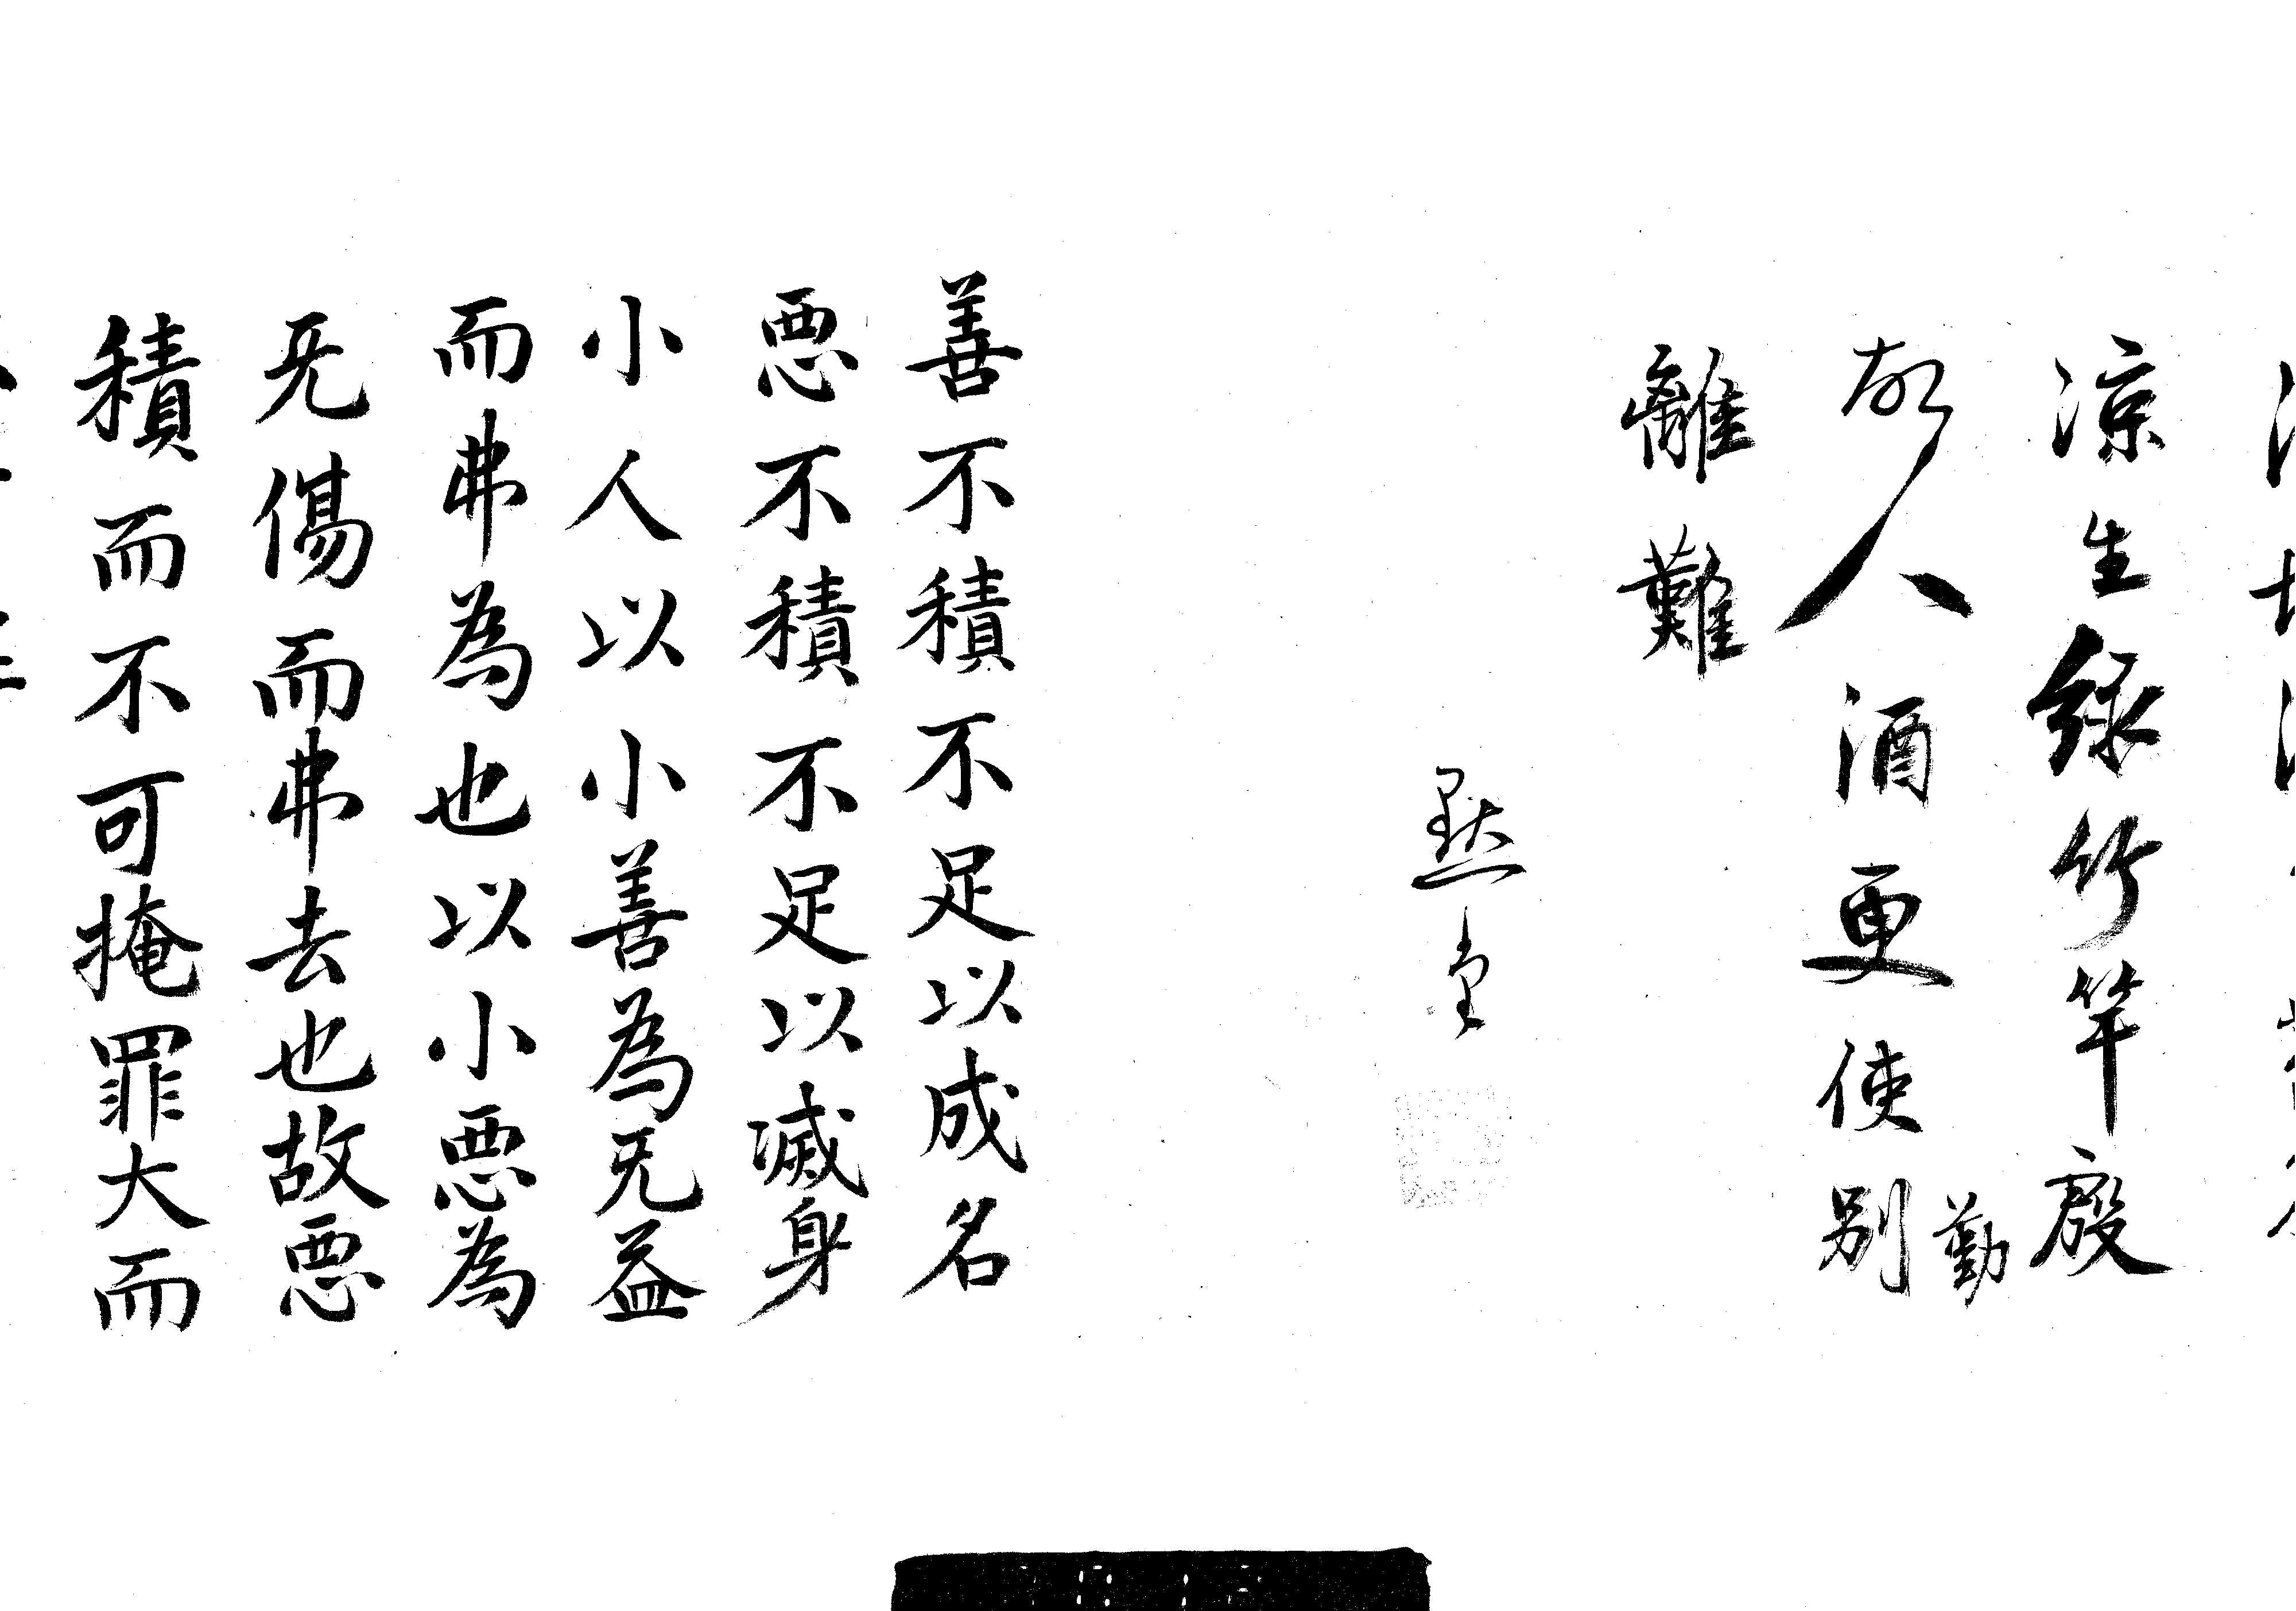 涼生緑竹竿殷
勤
故人酒更使別
離難
黙堂
善不積不足以成名
悪不積不足以滅身
小人以小善為无益
而弗為也以小悪為
无傷而弗去也故悪
積而不可掩罪大而